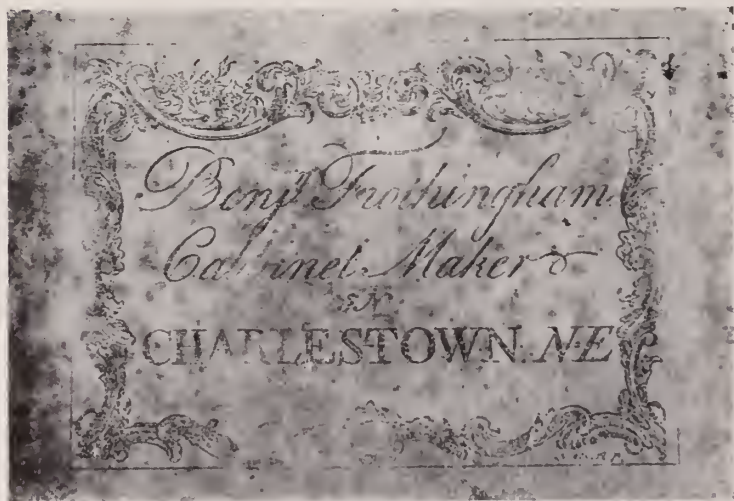 Benjⁿ Frothingham
Cabbinet Maker
IN
CHARLESTOWN. NE